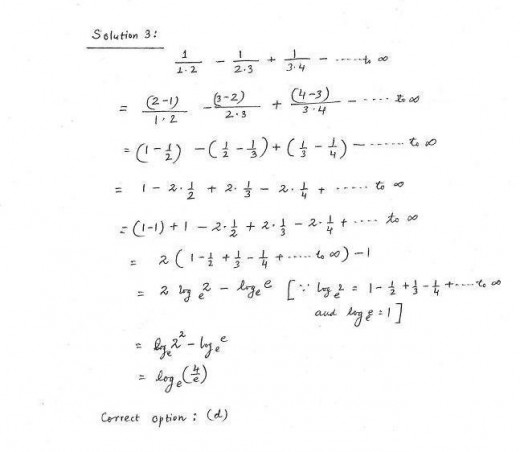 Solution 3:
1/1.2 - 1/2.3 + 1/3.4 - ......to ∞
= (2-1)/1.2 - (3-2)/2.3 + (4-3)/3.4 - ..... to ∞
= (1-1/2) - (1/2 - 1/3) + (1/3 - 1/4) - ...... to ∞
= 1 - 2·1/2 + 2·1/3 - 2·1/4 + ...... to ∞
= (1-1) + 1 - 2·1/2 + 2·1/3 - 2·1/4 + .... to ∞
= 2 (1 - 1/2 + 1/3 - 1/4 + ..... to ∞) - 1
= 2 log_e 2 - log_e e [∵ log_e 2 = 1 - 1/2 + 1/3 - 1/4 + .... to ∞
and log_e e = 1]
= log_e 2² - log_e e
= log_e (4/e)
Correct option : (d)